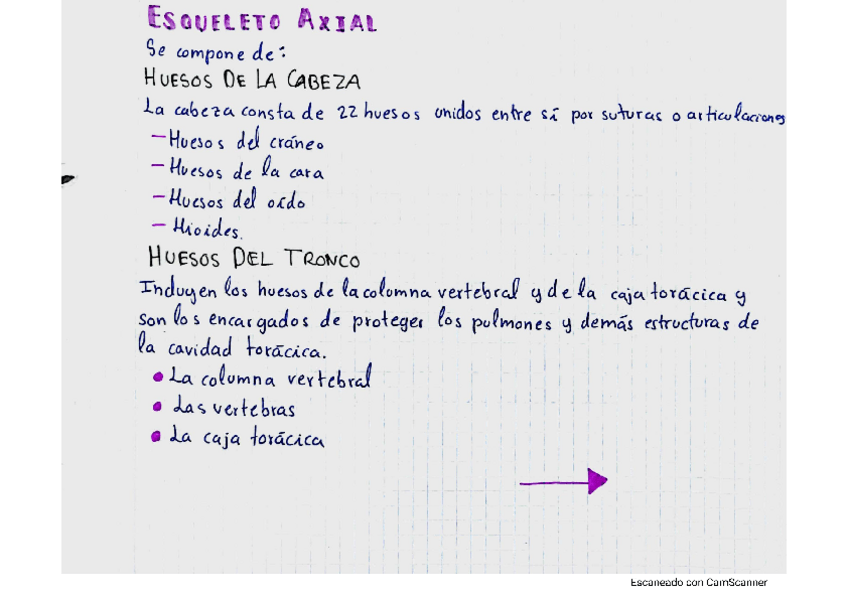 ESQUELETO AXIAL
Se compone de:
HUESOS DE LA CABEZA
La cabeza consta de 22 huesos unidos entre sí por suturas o articulaciones
- Huesos del cráneo
- Huesos de la cara
- Huesos del oído
- Hioides.
HUESOS DEL TRONCO
Incluyen los huesos de la columna vertebral y de la caja torácica y
son los encargados de proteger los pulmones y demás estructuras de
la cavidad torácica.
• La columna vertebral
• Las vertebras
• La caja torácica
Escaneado con CamScanner